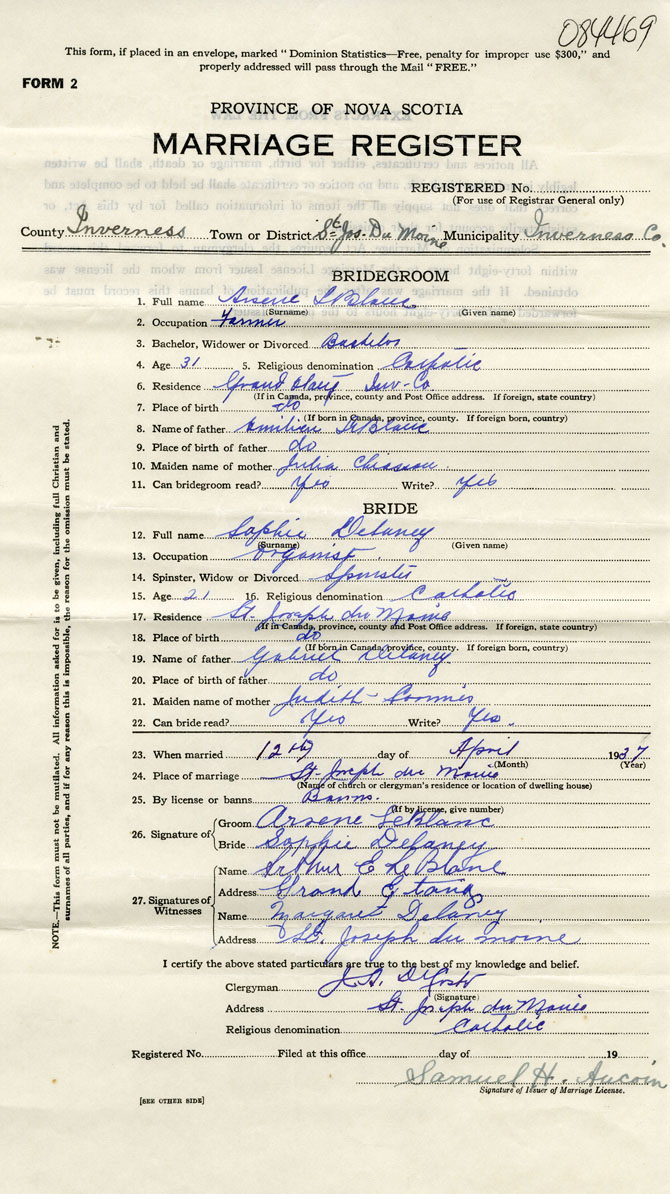 084469
This form, if placed in an envelope, marked "Dominion Statistics—Free, penalty for improper use $300," and
properly addressed will pass through the Mail "FREE."
FORM 2
PROVINCE OF NOVA SCOTIA
MARRIAGE REGISTER
REGISTERED No.
(For use of Registrar General only)
County Inverness Town or District St. Jos. Du Moine Municipality Inverness Co.
BRIDEGROOM
1. Full name Arsene LeBlanc
(Surname) (Given name)
2. Occupation Farmer
3. Bachelor, Widower or Divorced Bachelor
4. Age 31 5. Religious denomination Catholic
6. Residence Grand Etang Inv-Co
(If in Canada, province, county and Post Office address. If foreign, state country)
7. Place of birth do
(If born in Canada, province, county. If foreign born, country)
8. Name of father LeBlanc
9. Place of birth of father do
10. Maiden name of mother Julia Chiasson
11. Can bridegroom read? Yes Write? Yes
BRIDE
12. Full name Sophie Delaney
(Surname) (Given name)
13. Occupation Organist
14. Spinster, Widow or Divorced Spinster
15. Age 21 16. Religious denomination Catholic
17. Residence St. Joseph du Moine
(If in Canada, province, county and Post Office address. If foreign, state country)
18. Place of birth do
(If born in Canada, province, county. If foreign born, country)
19. Name of father Gabriel Delaney
20. Place of birth of father do
21. Maiden name of mother Judith
22. Can bride read? Yes Write? Yes.
23. When married 12th day of April 1937
(Month) (Year)
24. Place of marriage St. Joseph du Moine
(Name of church or clergyman's residence or location of dwelling house)
25. By license or banns Banns.
(If by license, give number)
26. Signature of Groom Arsene LeBlanc
Bride Sophie Delaney
27. Signatures of Witnesses Name Arthur E LeBlanc
Address Grand Etang
Name Margaret Delaney
Address St. Joseph du moine
I certify the above stated particulars are true to the best of my knowledge and belief.
Clergyman
(Signature)
Address St. Joseph du Moine
Religious denomination Catholic
Registered No. Filed at this office day of 19
Samuel H. Aucoin
Signature of Issuer of Marriage License.
[SEE OTHER SIDE]
NOTE.—This form must not be mutilated. All information asked for is to be given, including full Christian and
surnames of all parties, and if for any reason this is impossible, the reason for the omission must be stated.